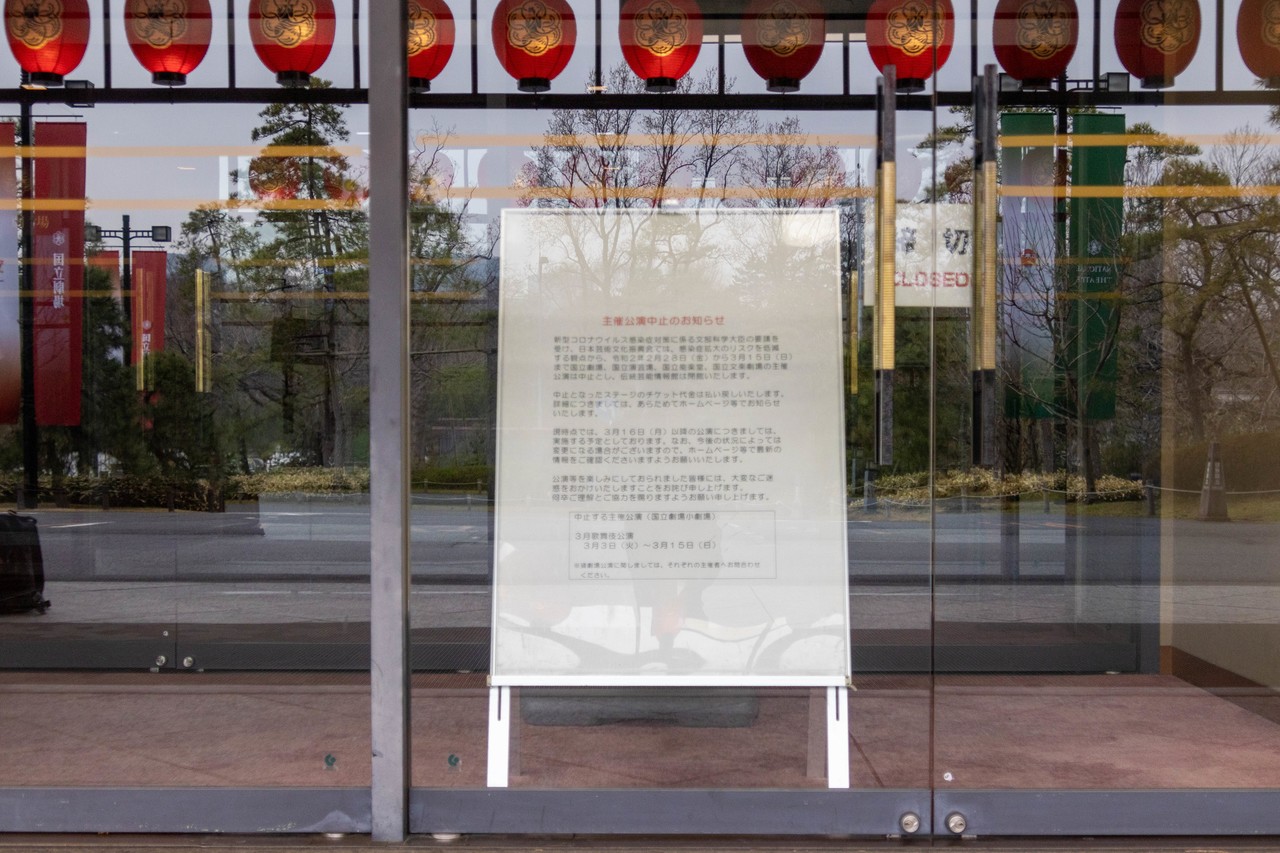 国立劇場
切
CLOSED
主催公演中止のお知らせ
新型コロナウイルス感染症対策に係る文部科学大臣の要請を
受け、日本芸術文化振興会では、感染症拡大のリスクを低減
する観点から、令和2年2月28日（金）から3月15日（日）
まで国立劇場、国立演芸場、国立能楽堂、国立文楽劇場の主催
公演は中止とし、伝統芸能情報館は閉館いたします。
中止となったステージのチケット代金は払い戻しいたします。
詳細につきましては、あらためてホームページ等でお知らせ
いたします。
現時点では、3月16日（月）以降の公演につきましては、
実施する予定としております。なお、今後の状況によっては
変更になる場合がございますので、ホームページ等で最新の
情報をご確認くださいますようお願いいたします。
公演等を楽しみにしておられました皆様には、大変なご迷
惑をおかけいたしますことをお詫び申し上げます。
何卒ご理解とご協力を賜りますようお願い申し上げます。
中止する主催公演（国立劇場小劇場）
3月歌舞伎公演
3月3日（火）～3月15日（日）
※貸劇場公演に関しましては、それぞれの主催者へお問合わせ
ください。